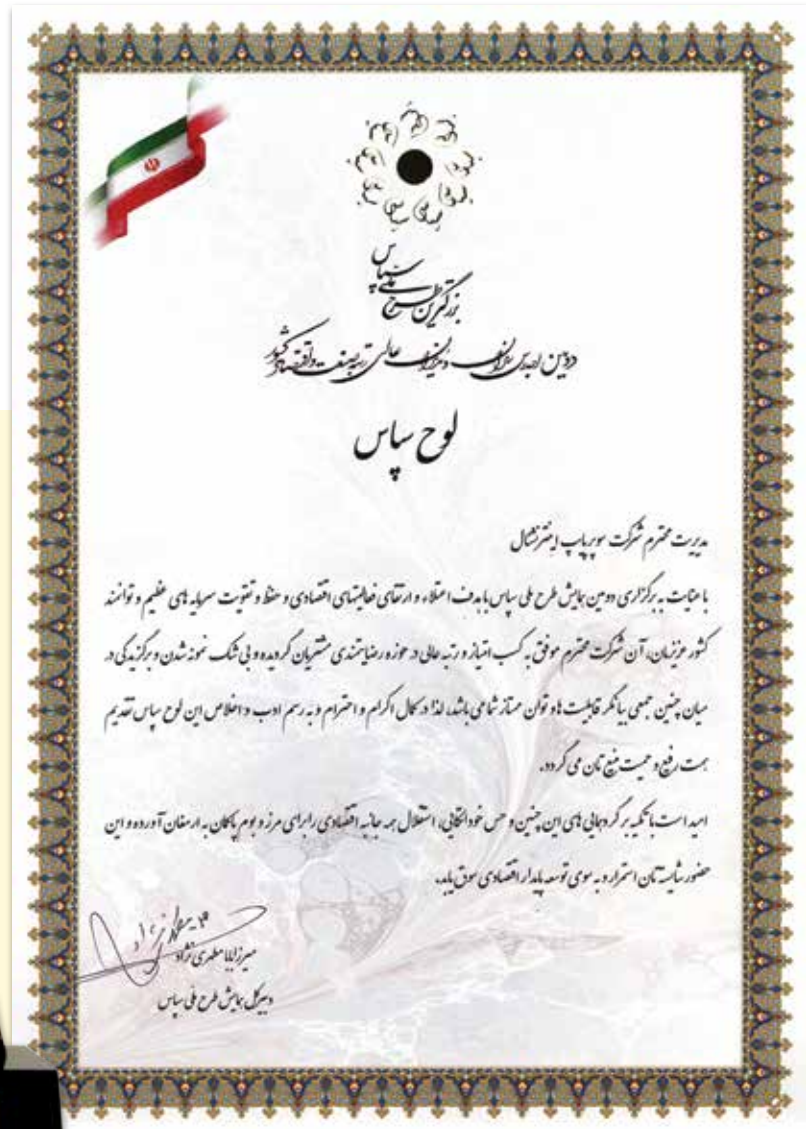 بزرگترین طرح ملی سپاس
دومین اجلاس سران و مدیران عالی رتبه صنعت و اقتصاد کشور
لوح سپاس
مدیریت محترم شرکت سوپرپایپ اینترنشنال
با عنایت به برگزاری دومین همایش طرح ملی سپاس با هدف اعتلاء و ارتقای فعالیتهای اقتصادی و حفظ و تقویت سرمایه های عظیم و توانمند
کشور عزیزمان، آن شرکت محترم موفق به کسب امتیاز و رتبه عالی در حوزه رضایتمندی مشتریان گردیده و بی شک نمونه شدن و برگزیدگی در
میان چنین جمعی بیانگر قابلیت ها و توان ممتاز شما می باشد، لذا در کمال اکرام و احترام و به رسم ادب و اخلاص این لوح سپاس تقدیم
همت رفیع و حمیت منیع تان می گردد.
امید است با تکیه بر گردهمایی های این چنین و حس خوداتکایی، استقلال همه جانبه اقتصادی را برای مرز و بوم پاکمان به ارمغان آورده و این
حضور شایسته تان استمرار و به سوی توسعه پایدار اقتصادی سوق یابد.
میرزابابا مطهری نژاد
دبیر کل همایش طرح ملی سپاس